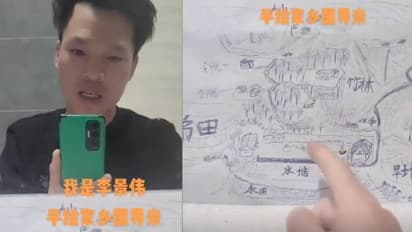 我是李景伟
手绘家乡图寻亲
手绘家乡图寻亲
竹林
稻田
水塘
水田
旱地